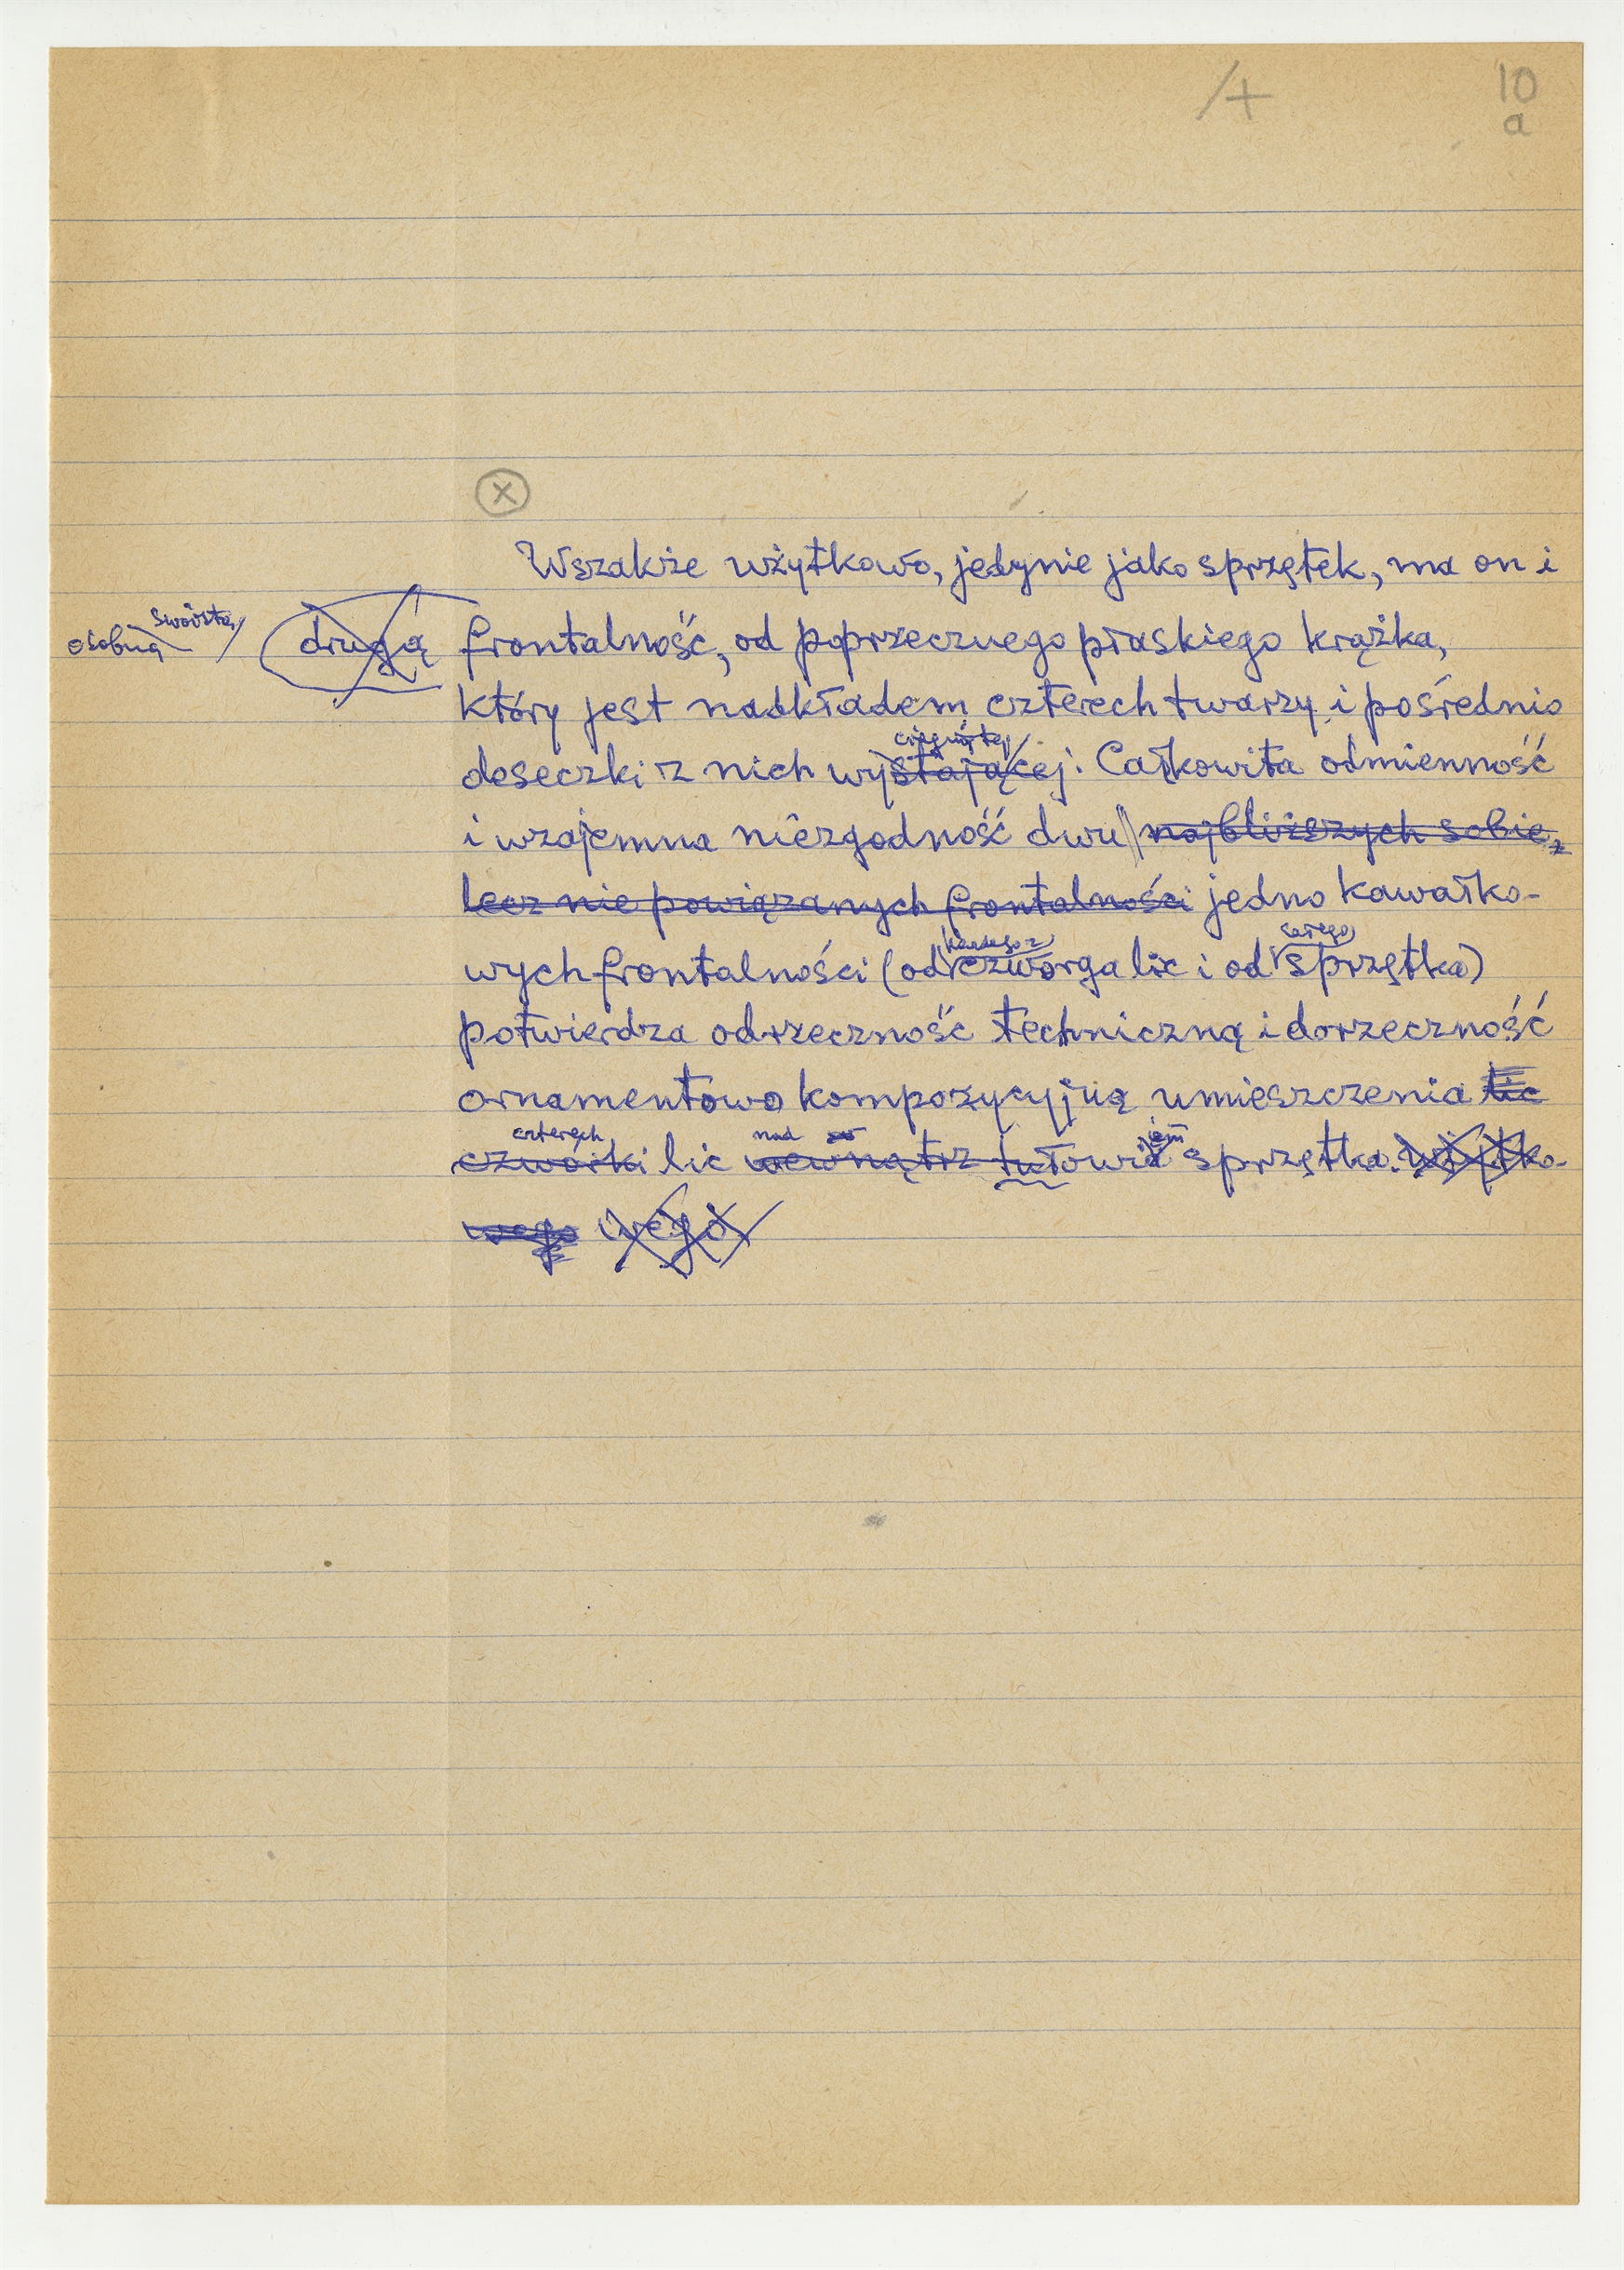 /+ 10
a
x
Wszakże użytkowo, jedynie jako sprzętek, ma on i
osobną swoistą drugą frontalność, od poprzecznego płaskiego krążka,
który jest nadkładem czterech twarzy i pośrednio
deseczki z nich wystającej. Całkowita odmienność
i wzajemna niezgodność dwu najbliższych sobie,
lecz nie powiązanych frontalności jedno kawałko-
każdego z całego
wych frontalności (od czworga lic i od sprzętka)
potwierdza odrzeczność techniczną i dorzeczność
ornamentowo kompozycyjną umieszczenia lic
czterech nad
czwórki lic wewnątrz tułowia sprzętka. użytko-
wego